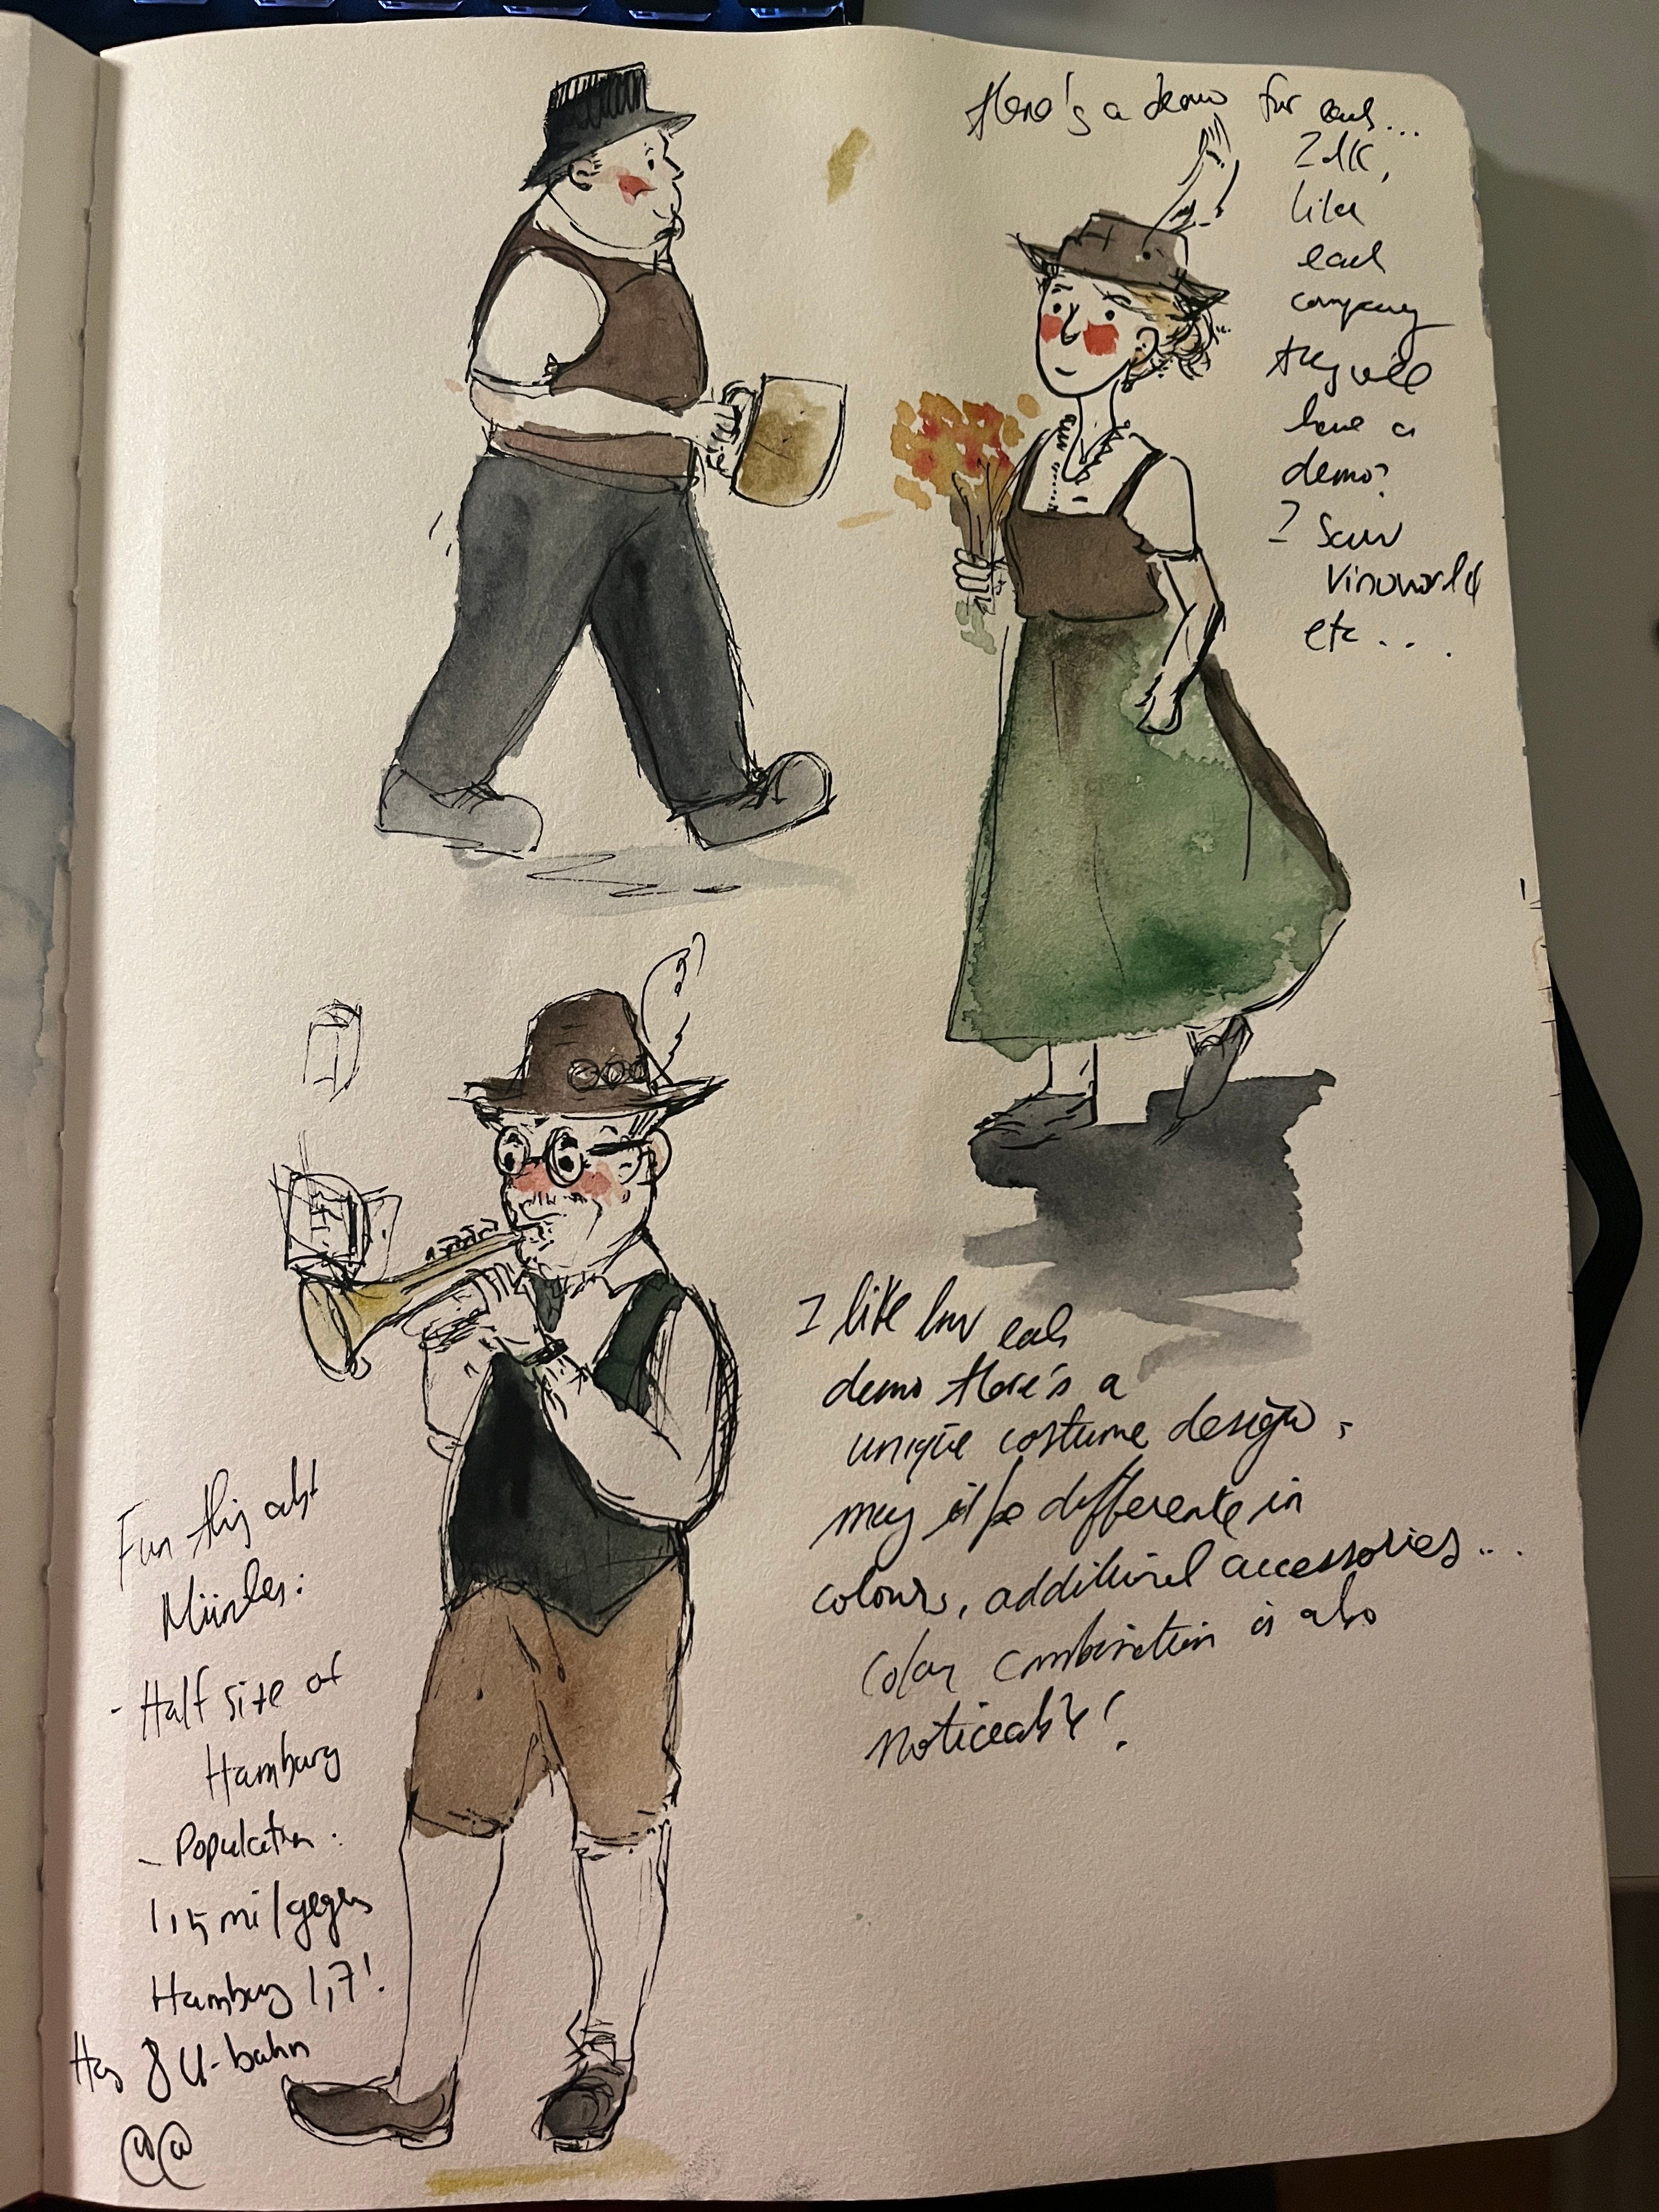 Here's a demo for each...
Idk,
like
each
company
they will
have a
demo?
I saw
Vinoworld
etc...
I like how each
demo there's a
unique costume design,
may it be different in
colours, additional accessories...
Color combination is also
noticeable!
Fun thing abt
München:
- Half size of
Hamburg
- Population:
1,5 mi/gegen
Hamburg 1,7!
Has 8 U-bahn